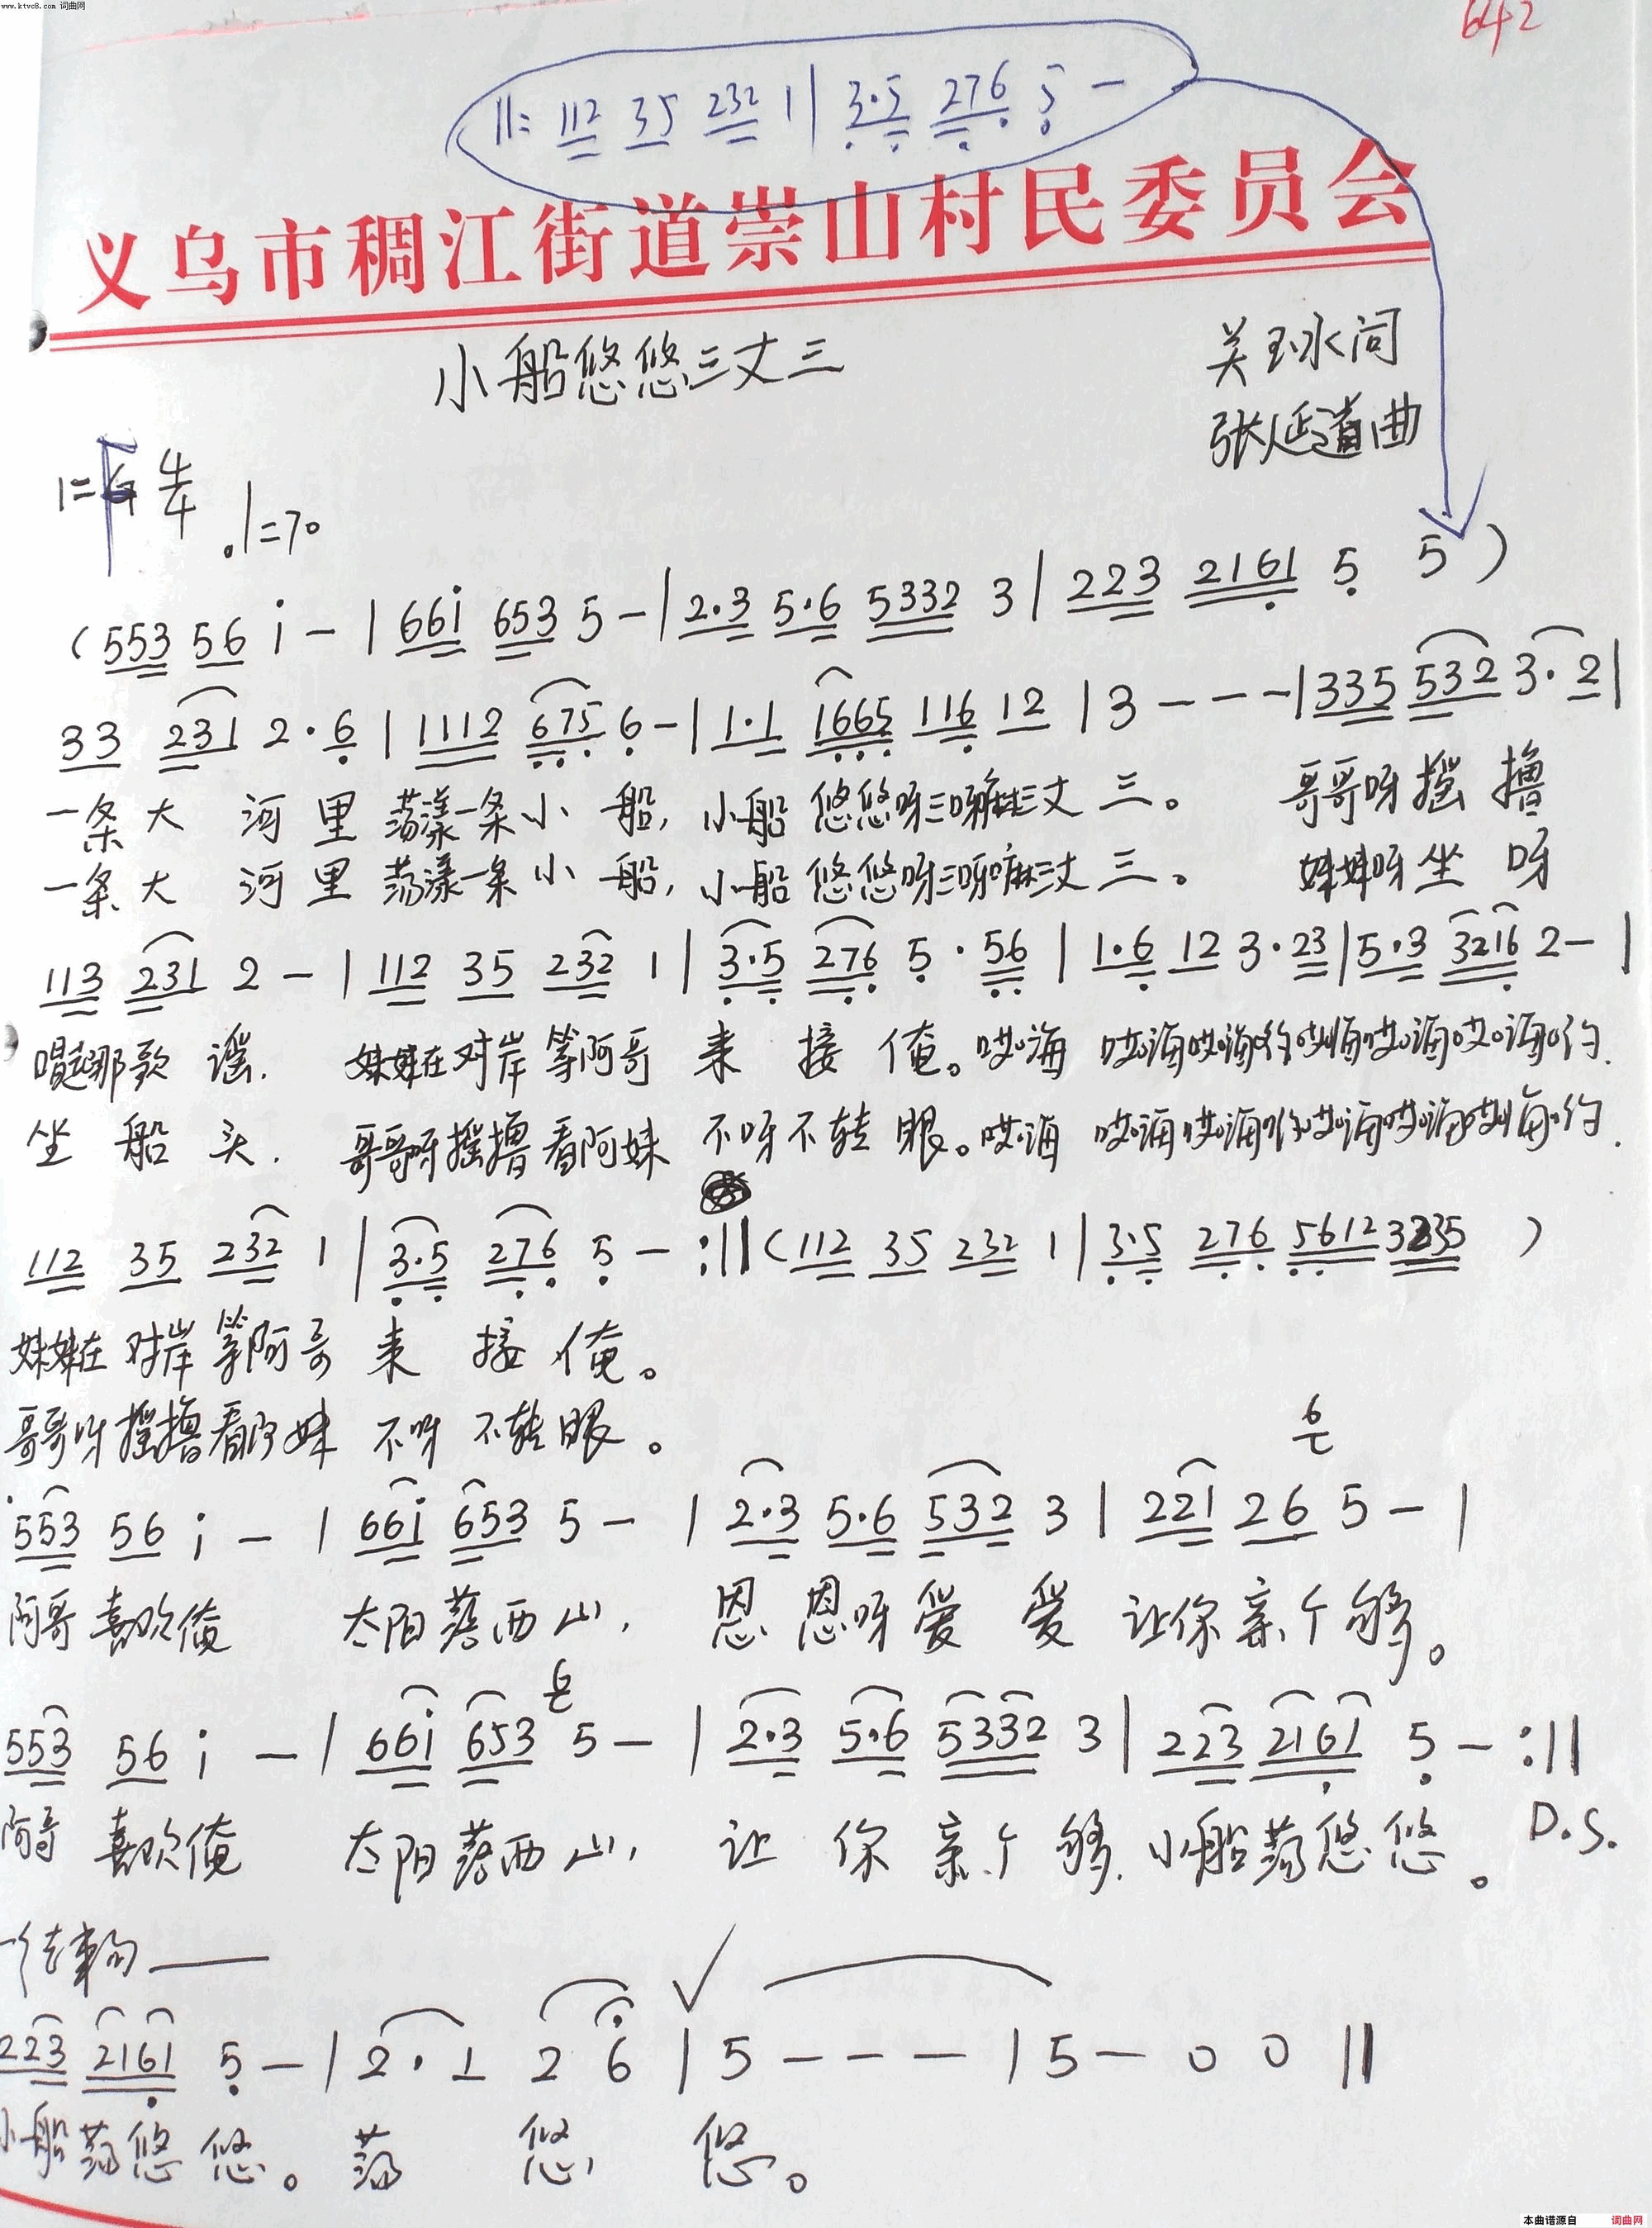 www.ktvc8.com 词曲网
642
||: 112 35 232 1 | 3·5 276 5 —
义乌市稠江街道崇山村民委员会
小船悠悠三丈三
关玉水词
张延道曲
1= 4/4
♩=70
( 553 56 i — | 66i 653 5 — | 2·3 5·6 5332 3 | 223 2161 5 5 )
33 231 2·6 | 1112 675 6 — | 1·1 1665 116 12 | 3 — — — | 335 532 3·2 |
一条大 河里 荡漾一条小 船, 小船 悠悠呀三呀嘛三丈 三。 哥哥呀摇 撸
一条大 河里 荡漾一条小 船, 小船 悠悠呀三呀嘛三丈 三。 妹妹呀坐 呀
113 231 2 — | 112 35 232 1 | 3·5 276 5·56 | 1·6 12 3·23 | 5·3 3216 2 — |
唱起那歌 谣. 妹妹在对岸等阿哥 来 接 俺。哎海 哎海哎海哟哎海哎海哎海哟.
坐 船 头. 哥哥呀摇撸看阿妹 不呀不转 眼。哎海 哎海哎海哟哎海哎海哎海哟.
112 35 232 1 | 3·5 276 5 — :|| ( 112 35 232 1 | 3·5 276 5612 3235 )
妹妹在 对岸 等阿哥 来 接 俺。
哥哥呀摇撸看阿妹 不呀 不转眼。
6
553 56 i — | 66i 653 5 — | 2·3 5·6 532 3 | 221 26 5 — |
阿哥 喜欢俺 太阳落西山, 恩 恩呀爱 爱 让你亲个够。
6
553 56 i — | 66i 653 5 — | 2·3 5·6 5332 3 | 223 2161 5 — :||
阿哥 喜欢俺 太阳落西山, 让 你 亲个 够. 小船荡悠悠。 D.S.
结束句——
223 2161 5 — | 2·1 2 6 | 5 — — — | 5 — 0 0 ||
小船荡悠悠。荡 悠 悠。
本曲谱源自 词曲网